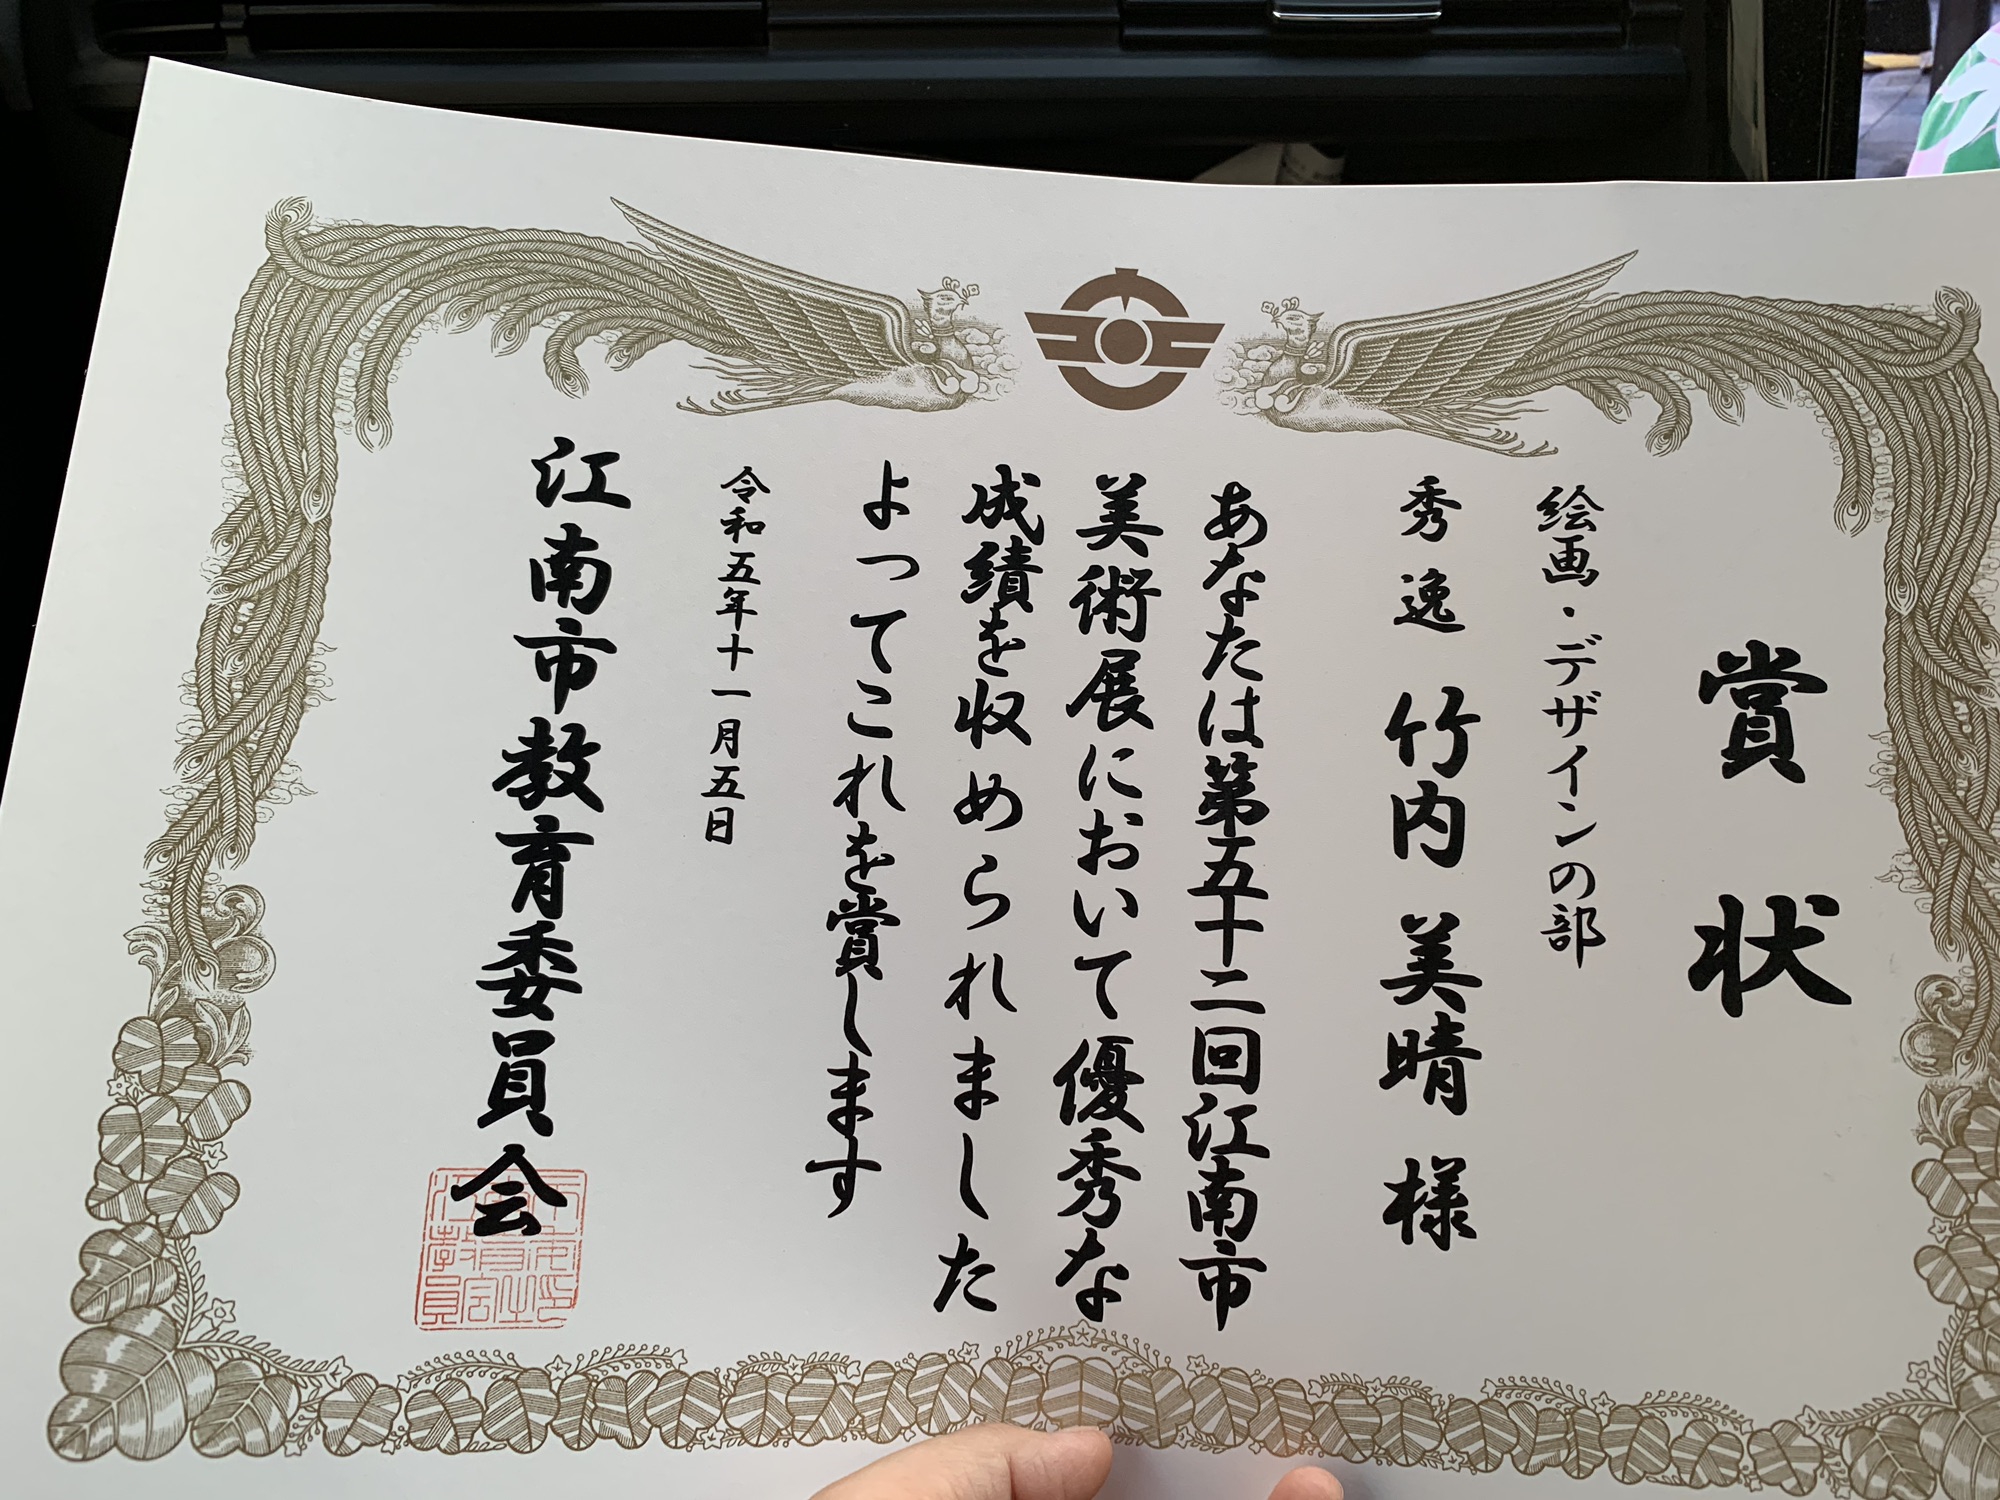 賞状
絵画・デザインの部
秀逸 竹内 美晴 様
あなたは第五十二回江南市
美術展において優秀な
成績を収められました
よってこれを賞します
令和五年十一月五日
江南市教育委員会